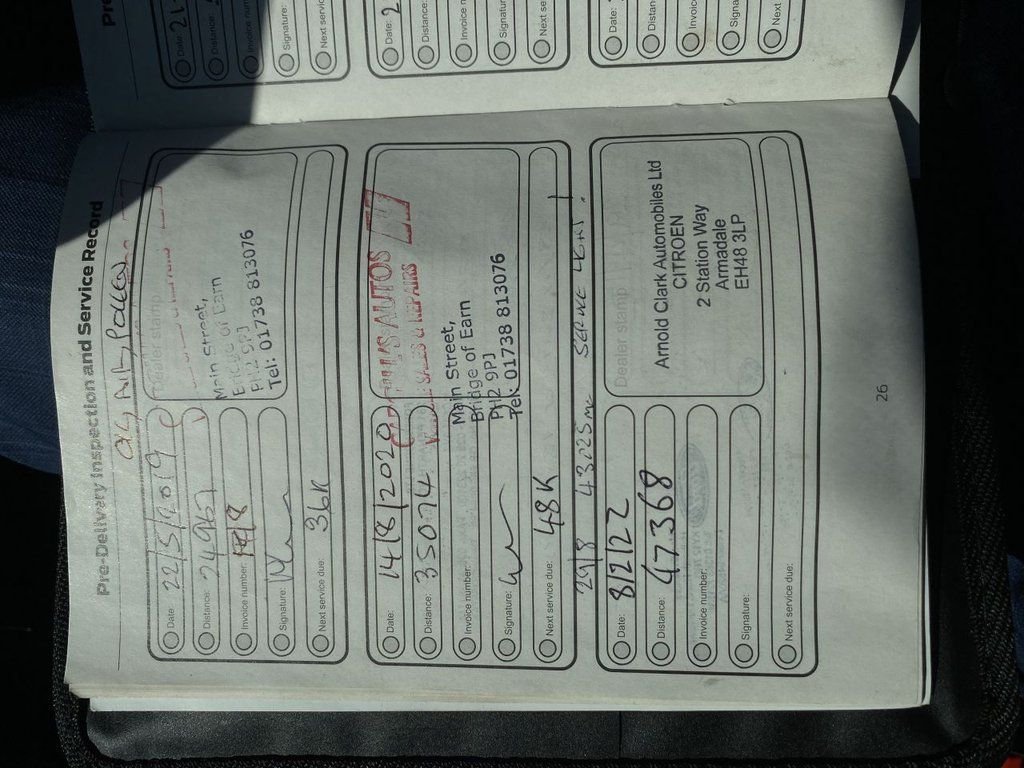 Pre-Delivery Inspection and Service Record
Date: 22/5/2019
Distance: 24967
Invoice number:
Signature:
Next service due: 36K
Dealer stamp
Main Street,
Bridge of Earn
PH2 9PJ
Tel: 01738 813076
Date: 14/8/2020
Distance: 35074
Invoice number:
Signature:
Next service due: 48K
AUTOS
SALES & REPAIRS
Main Street,
Bridge of Earn
PH2 9PJ
Tel: 01738 813076
29/8 43225 MLS SERVICE LIGHT!
Date: 8/2/22
Distance: 47368
Invoice number:
Signature:
Next service due:
Dealer stamp
Arnold Clark Automobiles Ltd
CITROEN
2 Station Way
Armadale
EH48 3LP
26
Date:
Distance:
Invoice
Signature:
Next service
Date: 2
Distance:
Invoice number:
Signature:
Next se
Date:
Distan
Invoice
Signa
Next